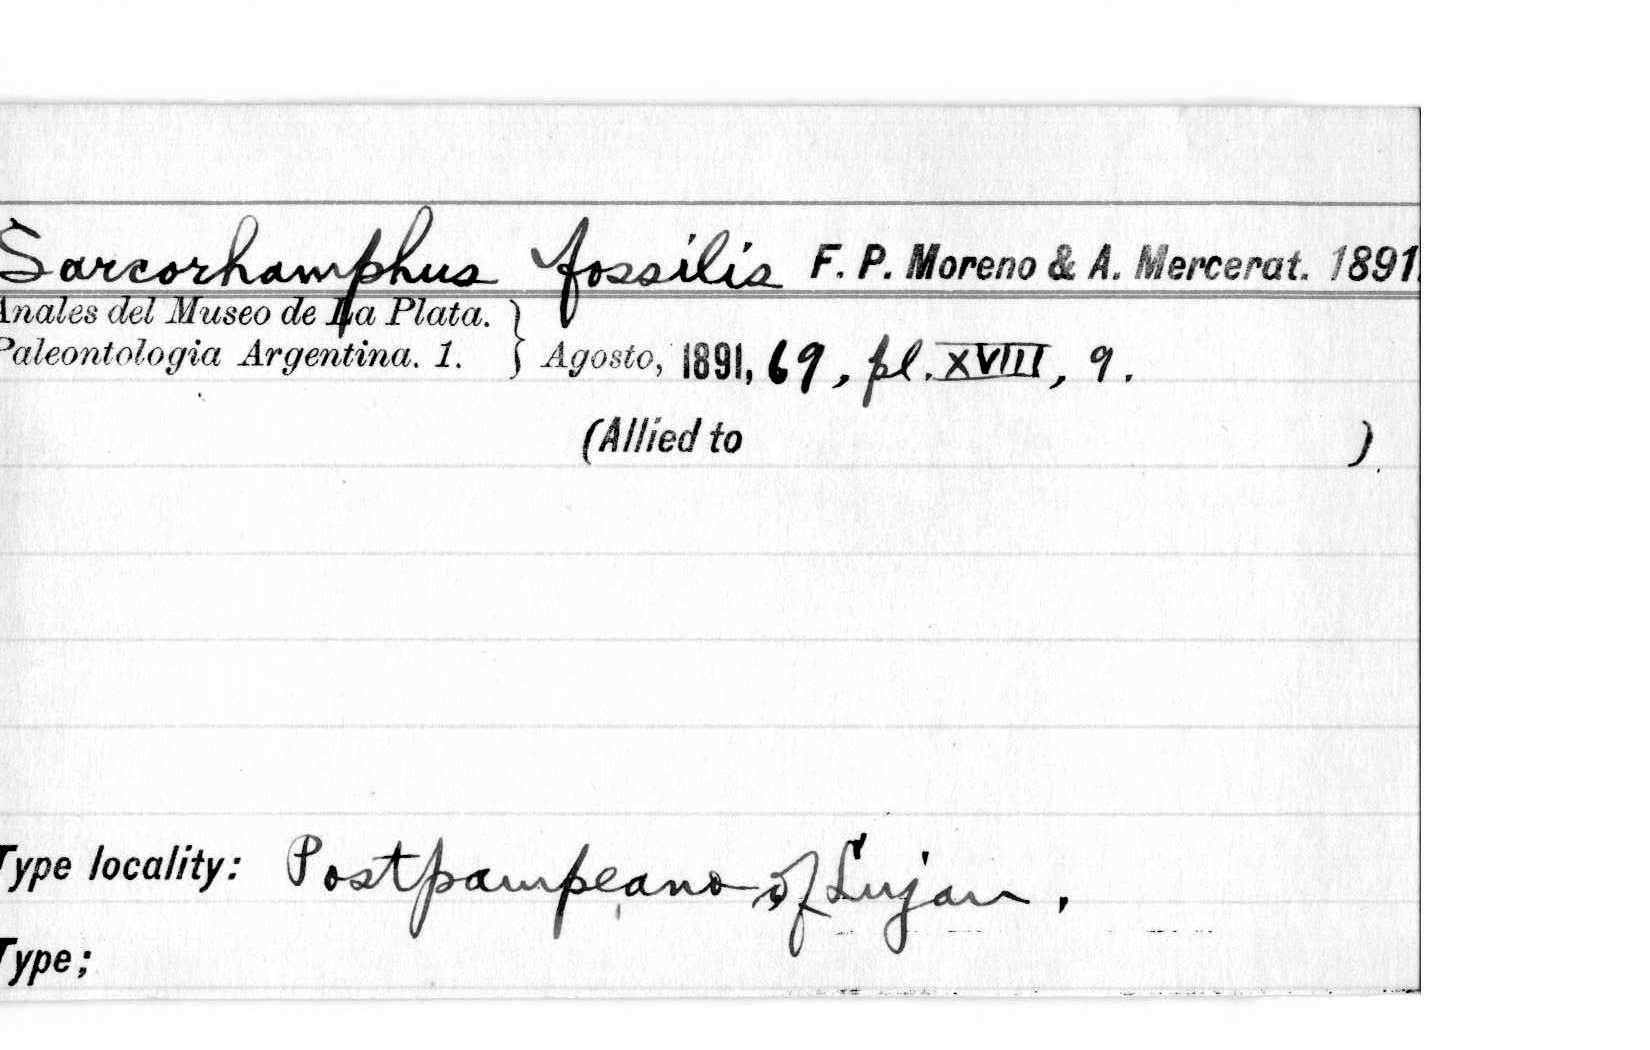 Sarcorhamphus fossilis F. P. Moreno & A. Mercerat. 1891.
Anales del Museo de La Plata.
Paleontologia Argentina. 1. } Agosto, 1891, 69, pl. XVIII, 9.
(Allied to )
Type locality: Postpampeano of Lujan.
Type;